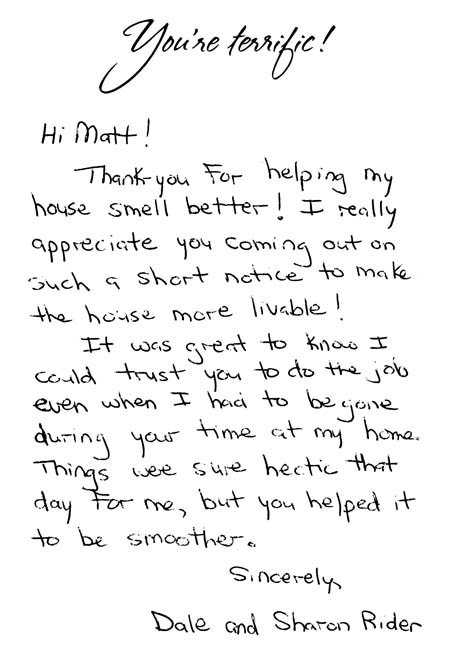 You're terrific!
Hi Matt!
Thank-you For helping my
house smell better! I really
appreciate you coming out on
such a short notice to make
the house more livable!
It was great to know I
could trust you to do the job
even when I had to be gone
during your time at my home.
Things wee sure hectic that
day For me, but you helped it
to be smoother.
Sincerely,
Dale and Sharon Rider